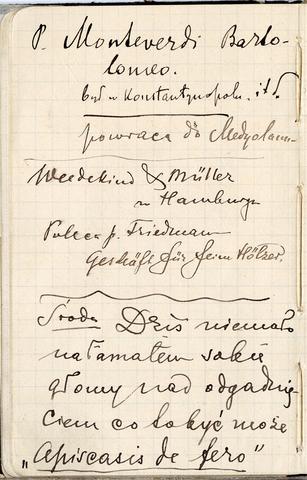 P. Monteverdi Barto-
lomeo.
był w Konstantynopolu. itd.
powraca do Medyolanu
Weedekind & Müller
w Hamburgu
Poleca p. Friedmann
Geschäft für feine Hölzer.
Środa Dziś niemało
nałamałem sobie
głowy nad odgadnię-
ciem co to być może
„Apiscasis de fero"